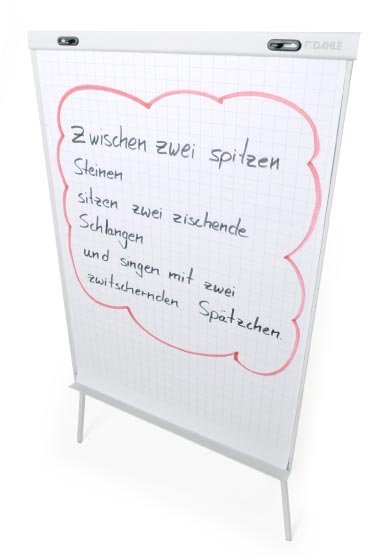 DAHLE
Zwischen zwei spitzen
Steinen
sitzen zwei zischende
Schlangen
und singen mit zwei
zwitschernden Spätzchen.